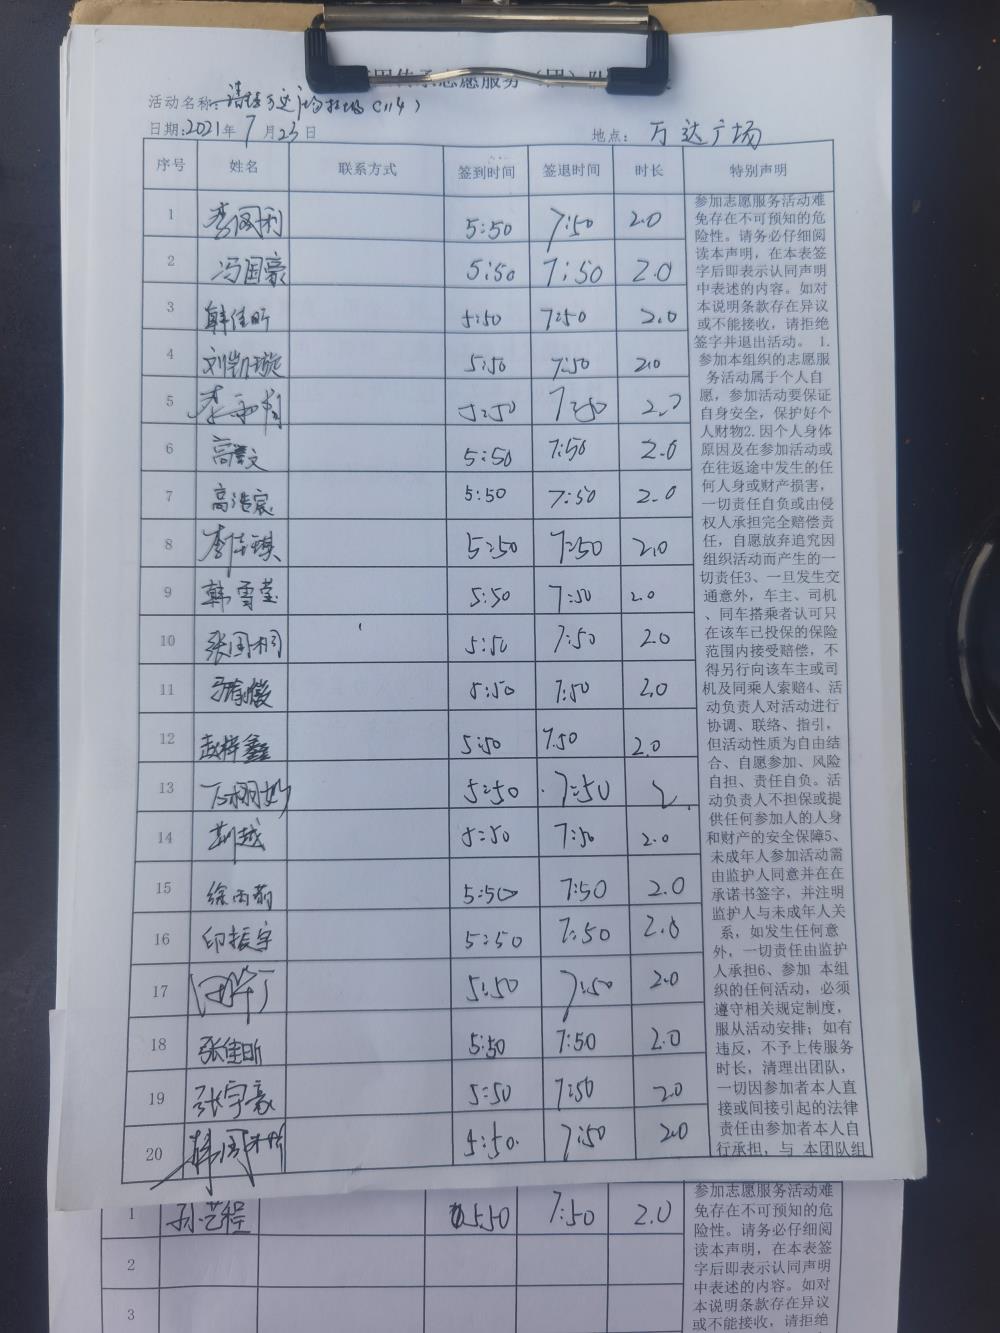 传承志愿服务（团）队
活动名称: 万达广场
日期:2021年7月23日 地点：万达广场
序号 姓名 联系方式 签到时间 签退时间 时长 特别声明
1 5:50 7:50 2.0
2 冯国豪 5:50 7:50 2.0
3 韩佳昕 5:50 7:50 2.0
4 刘凯璇 5:50 7:50 2.0
5 5:50 7:50 2.0
6 5:50 7:50 2.0
7 高浩宸 5:50 7:50 2.0
8 李佳琪 5:50 7:50 2.0
9 韩雪莹 5:50 7:50 2.0
10 张国栩 5:50 7:50 2.0
11 5:50 7:50 2.0
12 赵梓鑫 5:50 7:50 2.0
13 5:50 7:50 2.
14 荆越 5:50 7:50 2.0
15 徐雨萌 5:50 7:50 2.0
16 印振宇 5:50 7:50 2.0
17 5:50 7:50 2.0
18 张佳昕 5:50 7:50 2.0
19 张宇豪 5:50 7:50 2.0
20 5:50 7:50 2.0
参加志愿服务活动难
免存在不可预知的危
险性。请务必仔细阅
读本声明，在本表签
字后即表示认同声明
中表述的内容。如对
本说明条款存在异议
或不能接收，请拒绝
签字并退出活动。 1.
参加本组织的志愿服
务活动属于个人自
愿，参加活动要保证
自身安全，保护好个
人财物2.因个人身体
原因及在参加活动或
在往返途中发生的任
何人身或财产损害，
一切责任自负或由侵
权人承担完全赔偿责
任，自愿放弃追究因
组织活动而产生的一
切责任3、一旦发生交
通意外，车主、司机
、同车搭乘者认可只
在该车已投保的保险
范围内接受赔偿，不
得另行向该车主或司
机及同乘人索赔4、活
动负责人对活动进行
协调、联络、指引，
但活动性质为自由结
合、自愿参加、风险
自担、责任自负。活
动负责人不担保或提
供任何参加人的人身
和财产的安全保障5、
未成年人参加活动需
由监护人同意并在在
承诺书签字，并注明
监护人与未成年人关
系，如发生任何意
外，一切责任由监护
人承担6、参加 本组
织的任何活动，必须
遵守相关规定制度，
服从活动安排；如有
违反，不予上传服务
时长，清理出团队，
一切因参加者本人直
接或间接引起的法律
责任由参加者本人自
行承担，与 本团队组
1 孙艺程 5:50 7:50 2.0
2
3
参加志愿服务活动难
免存在不可预知的危
险性。请务必仔细阅
读本声明，在本表签
字后即表示认同声明
中表述的内容。如对
本说明条款存在异议
或不能接收，请拒绝